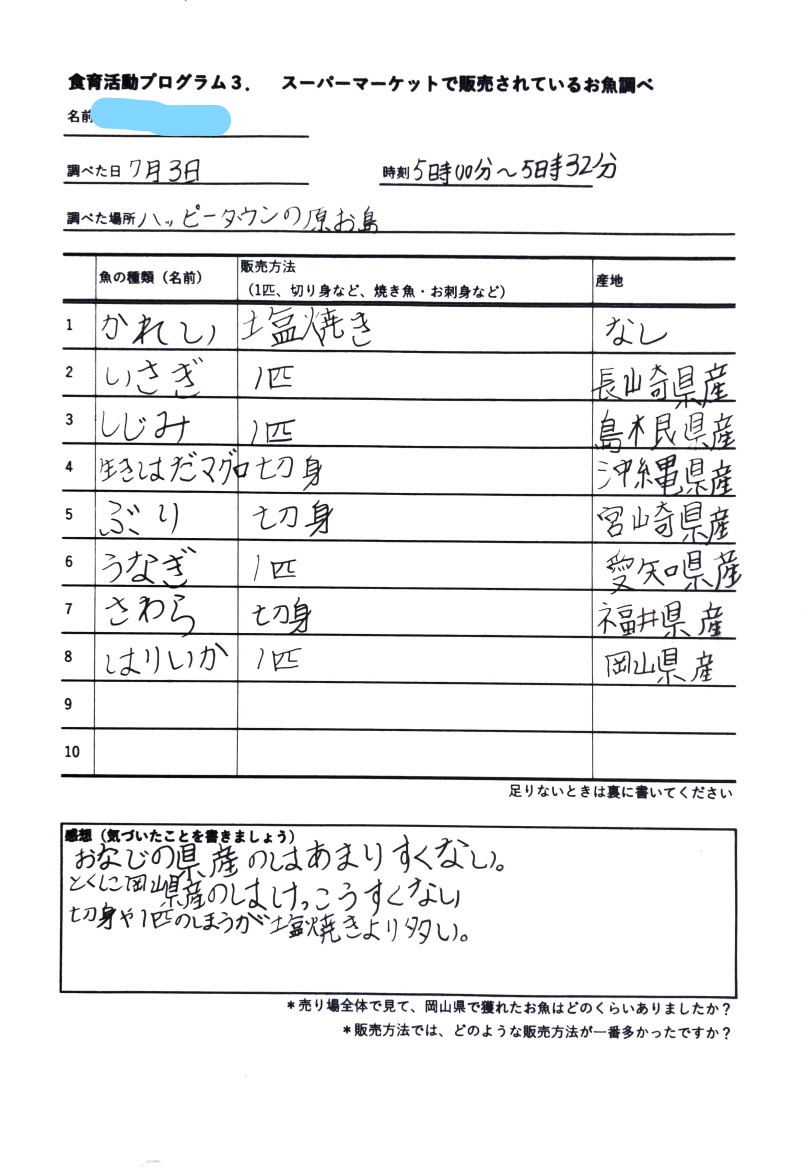 食育活動プログラム3. スーパーマーケットで販売されているお魚調べ
名前
調べた日 7月3日 時刻 5時00分〜5時32分
調べた場所 ハッピータウンの原お島
魚の種類(名前) 販売方法 (1匹、切り身など、焼き魚・お刺身など) 産地
1 かれい 塩焼き なし
2 いさぎ 1匹 長山奇県産
3 しじみ 1匹 島木民県産
4 生きはだマグロ 切身 沖縄県産
5 ぶり 切身 宮崎県産
6 うなぎ 1匹 愛知県産
7 さわら 切身 福井県産
8 はりいか 1匹 岡山県産
9
10
足りないときは裏に書いてください
感想(気づいたことを書きましょう)
おなじの県産のはあまりすくなし)。
とくに岡山県産のはけっこうすくない
切身や1匹のほうが塩焼きより多い。
*売り場全体で見て、岡山県で獲れたお魚はどのくらいありましたか?
*販売方法では、どのような販売方法が一番多かったですか?